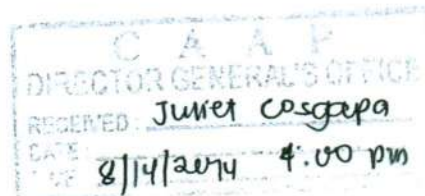 C A A P
DIRECTOR GENERAL'S OFFICE
RECEIVED: Juliet Cosgapa
DATE:
8/14/2014 4:00 pm